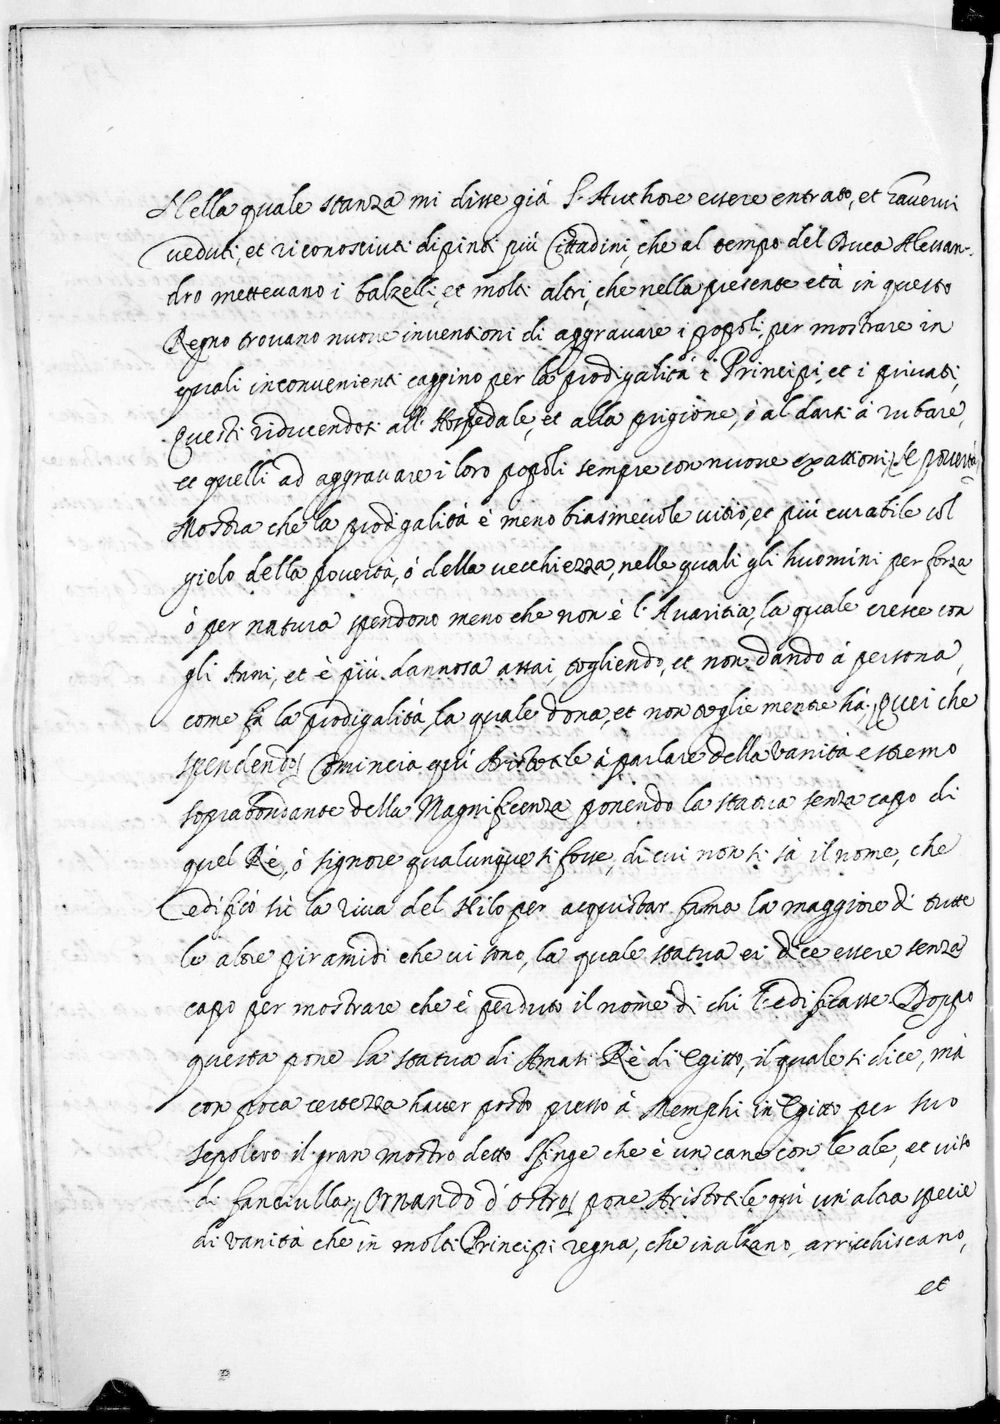 Nella quale stanza mi disse già l'Authore essere entrato, et havervi
veduti, et riconosciuti dipinti più Cittadini, che al tempo del Duca Alessan-
dro mettevano i balzelli, et molti altri, che nella presente età in questo
Regno trovano nuove inventioni di aggravare i popoli, per mostrare in
quali inconvenienti caggino per la prodigalità i Principi, et i privati,
Questi riducendosi all'Hospedale, et alla prigione, ò al darsi à rubare,
et quelli ad aggravare i loro popoli sempre con nuove exattioni, Se povertà
Mostra che la prodigalità è meno biasmevole vitio, et più curabile col
gielo della povertà, ò della vecchiezza, nelle quali gli huomini per forza
ò per natura spendono meno che non è l'Avaritia, la quale cresce con
gli Anni, et è più dannosa assai, togliendo, et non dando à persona,
come fa la prodigalità, la quale dona, et non toglie mentre hà. Quei che
spendendo Comincia quì Aristotile à parlare della vanità estremo
soprabondante della Magnificenza ponendo la statua senza capo di
quel Rè, ò signore qualunque si fosse, di cui non si sà il nome, che
edificò sù la riva del Nilo per acquistar fama la maggiore di tutte
le altre piramidi che vi sono, la quale statua ei dice essere senza
capo per mostrare che è perduto il nome di chi l'edificasse Doppo
questa pone la statua di Amasi Rè di Egitto, il quale si dice, mà
con poca certezza haver posto presso à Memphi in Egitto per suo
sepolcro il gran mostro detto Sfinge che è un cane con le ale, et viso
di fanciulla, Ornando d'ostro pone Aristotile quì un'altra specie
di vanità che in molti Principi regna, che inalzano, arricchiscano,
et